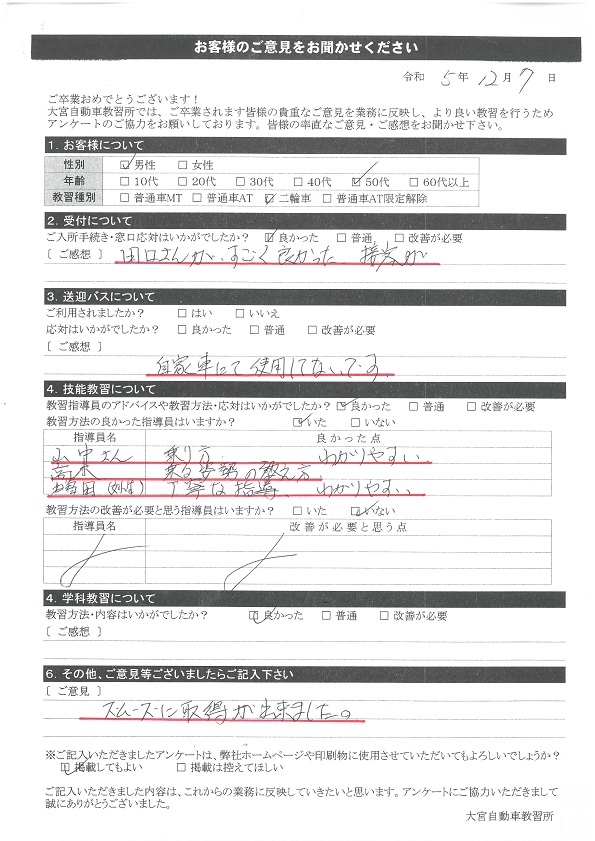 お客様のご意見をお聞かせください
令和 5年 12月 7日
ご卒業おめでとうございます！
大宮自動車教習所では、ご卒業されます皆様の貴重なご意見を業務に反映し、より良い教習を行うため
アンケートのご協力をお願いしております。皆様の率直なご意見・ご感想をお聞かせ下さい。
1. お客様について
性別 ☑男性 □女性
年齢 □10代 □20代 □30代 □40代 ☑50代 □60代以上
教習種別 □普通車MT □普通車AT ☑二輪車 □普通車AT限定解除
2. 受付について
ご入所手続き・窓口応対はいかがでしたか？ ☑良かった □普通 □改善が必要
［ご感想］ 田口さんが、すごく良かった 接客が
3. 送迎バスについて
ご利用されましたか？ □はい □いいえ
応対はいかがでしたか？ □良かった □普通 □改善が必要
［ご感想］
自家車にて使用してないです
4. 技能教習について
教習指導員のアドバイスや教習方法・応対はいかがでしたか？ ☑良かった □普通 □改善が必要
教習方法の良かった指導員はいますか？ ☑いた □いない
指導員名 良かった点
山中さん 乗り方 わかりやすい
高木 乗る姿勢の教え方
田 丁寧な指導、わかりやすい、
教習方法の改善が必要と思う指導員はいますか？ □いた ☑いない
指導員名 改善が必要と思う点
4. 学科教習について
教習方法・内容はいかがでしたか？ ☑良かった □普通 □改善が必要
［ご感想］
6. その他、ご意見等ございましたらご記入下さい
［ご意見］
スムーズに取得が出来ました。
※ご記入いただきましたアンケートは、弊社ホームページや印刷物に使用させていただいてもよろしいでしょうか？
☑掲載してもよい □掲載は控えてほしい
ご記入いただきました内容は、これからの業務に反映していきたいと思います。アンケートにご協力いただきまして
誠にありがとうございました。
大宮自動車教習所